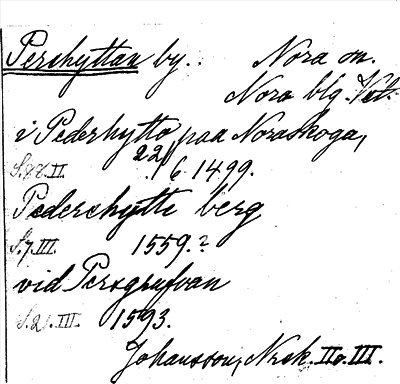 Pershyttan by. Nora sn.
Nora blg. Vst.
i Pederhytto paa Noraskoga,
S.88.II. 22/6 1499.
Pederehytte berg
S.7.III. 1559.?
vid Persgrufvan
S.21.III. 1593.
Johansson, Nrsk. II o. III.